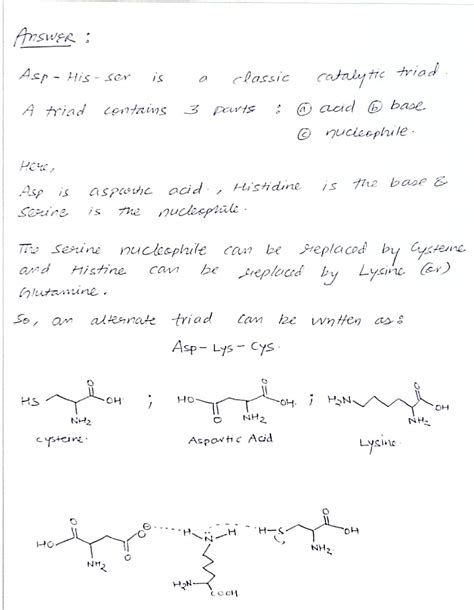 Answer :
Asp - His - ser is a classic catalytic triad.
A triad contains 3 parts : ⓐ acid ⓑ base
ⓒ nucleophile.
Here,
Asp is aspartic acid , Histidine is the base &
Serine is the nucleophile.
The serine nucleophile can be replaced by Cysteine
and Histine can be replaced by Lysine (or)
Glutamine.
So, an alternate triad can be written as :
Asp - Lys - Cys.
HS O OH NH2 ; HO O O OH NH2 ; H2N O OH NH2
Cysteine. Aspartic Acid Lysine.
HO O NH2 O O⊖ H N H H-S O OH NH2
H2N COOH